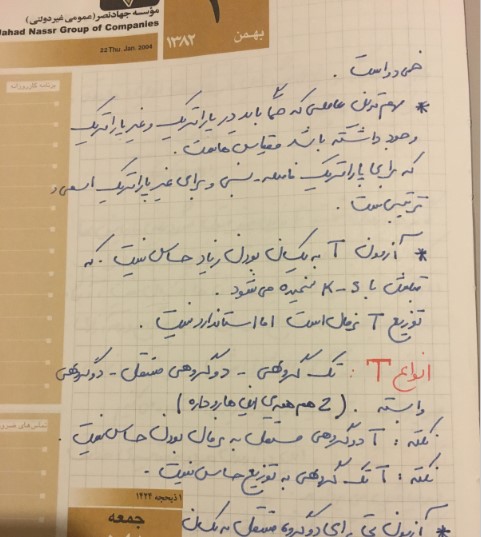 مؤسسه جهاد نصر (عمومی غیر دولتی)
Jahad Nassr Group of Companies
22 Thu. Jan. 2004
بهمن
۱۳۸۲
برنامه کار روزانه
خمی دو است .
* مهم ترین عاملی که حتماً باید در پاراتریک و غیر پاراتریک
وجود داشته باشد مقیاس هاست .
که برای پاراتریک فاصله - نسبی و برای غیر پاراتریک اسمی و
ترتیبی است .
* آزمون T به یکسان بودن زیاد حساس نیست . که
تبعش با K-S سنجیده می شود .
توزیع T نرمال است اما استاندارد نیست .
انواع T : تک گروهی - دو گروهی مستقل - دو گروهی
وابسته . ( Z هم همه ی این ها رو داره )
نکته : T دو گروهی مستقل به نرمال بودن حساس نیست .
نکته : T تک گروهی به توزیع حساس نیست .
تماس های ضرور
۱ ذیحجه ۱۴۲۴
جمعه
* آزمون تی برای دو گروه مستقل به یکسان